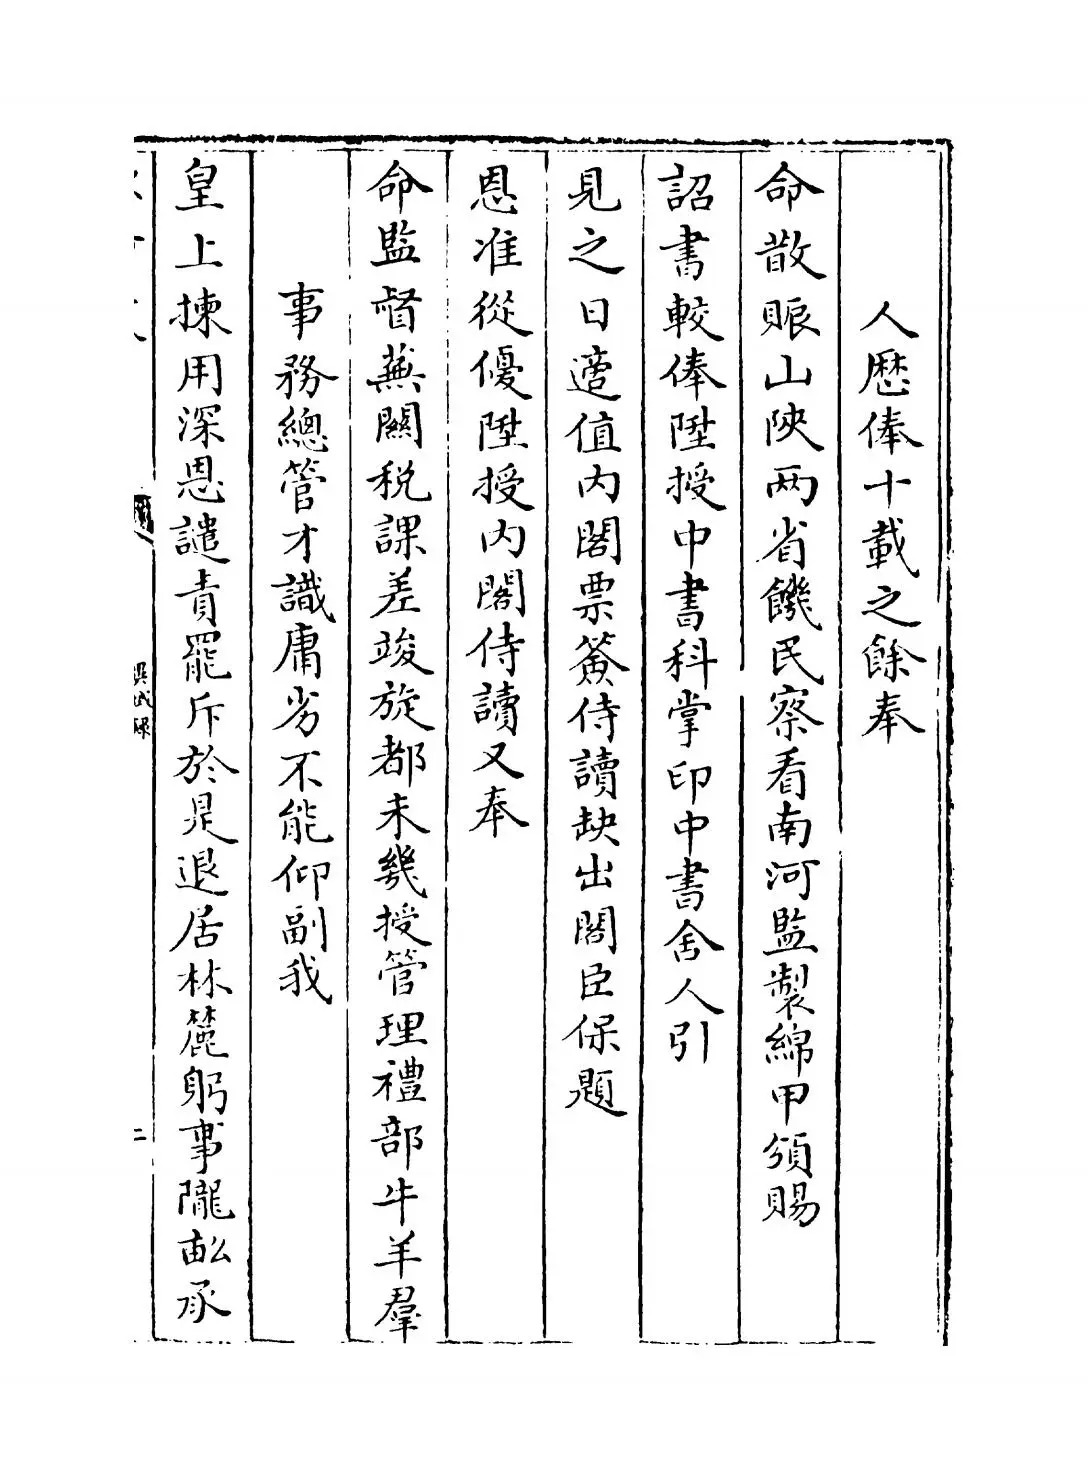 人歷俸十載之餘奉
命散賑山陝两省饑民察看南河監製綿甲頒賜
詔書較俸陞授中書科掌印中書舍人引
見之日適值内閣票簽侍讀缺出閣臣保題
恩准從優陞授内閣侍讀又奉
命監督蕪關税課差竣旋都未幾授管理禮部牛羊羣
事務總管才識庸劣不能仰副我
皇上揀用深恩譴責罷斥於是退居林麓躬事隴畝承
二